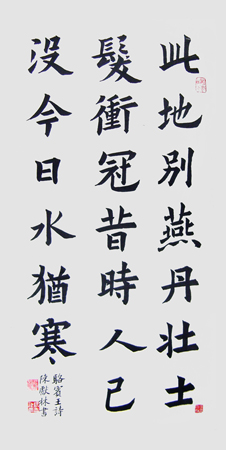 此地別燕丹壮士
髮衝冠昔時人已
没今日水猶寒
駱賓王詩
陳獻林書